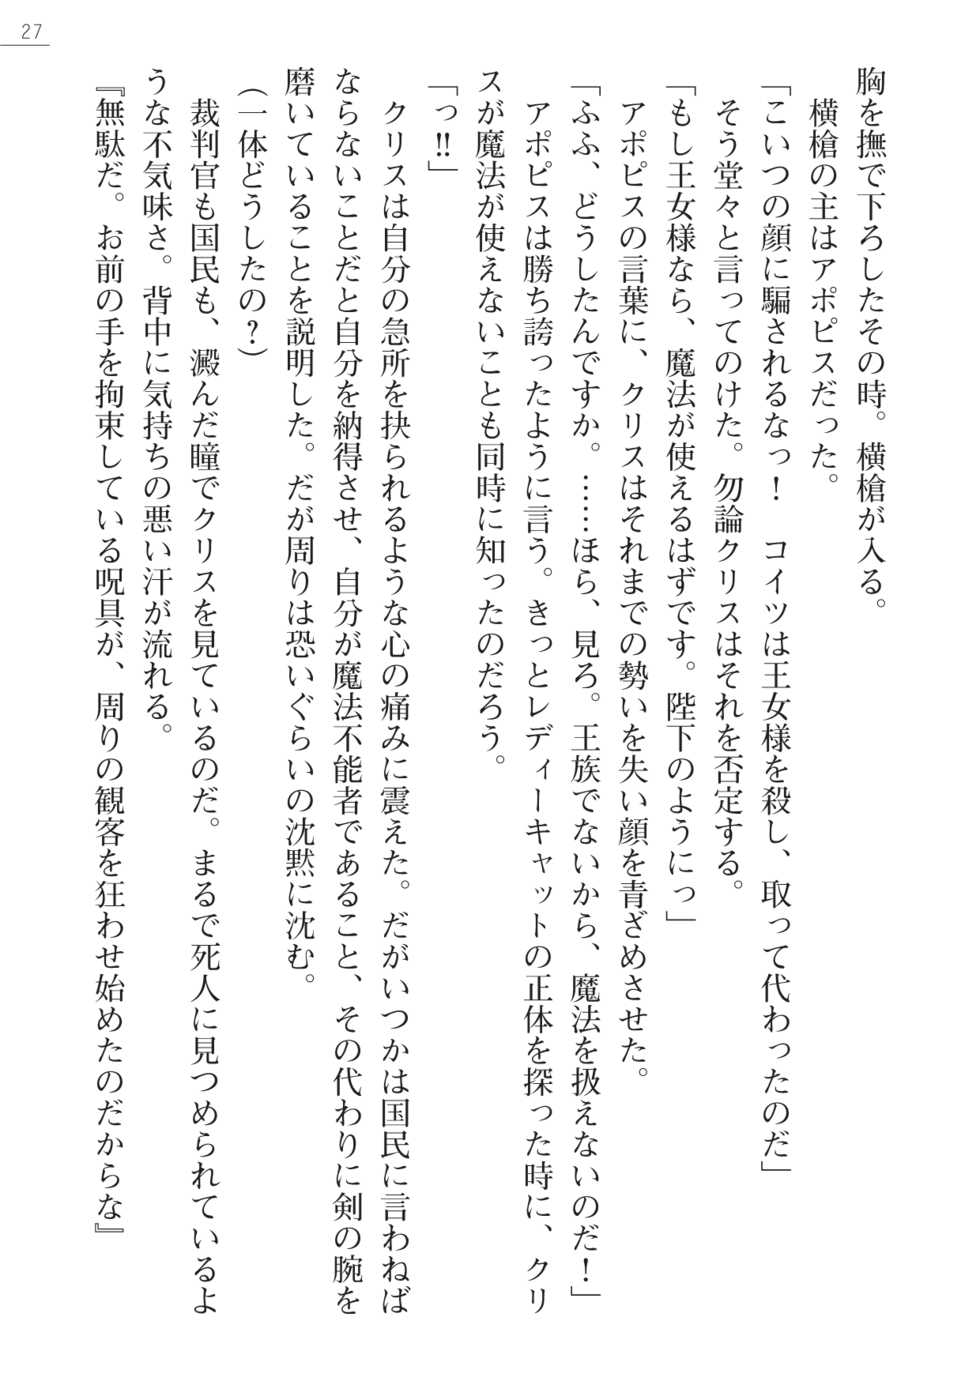 27
胸を撫で下ろしたその時。横槍が入る。
横槍の主はアポピスだった。
「こいつの顔に騙されるなっ！　コイツは王女様を殺し、取って代わったのだ」
そう堂々と言ってのけた。勿論クリスはそれを否定する。
「もし王女様なら、魔法が使えるはずです。陛下のようにっ」
アポピスの言葉に、クリスはそれまでの勢いを失い顔を青ざめさせた。
「ふふ、どうしたんですか。……ほら、見ろ。王族でないから、魔法を扱えないのだ！」
アポピスは勝ち誇ったように言う。きっとレディーキャットの正体を探った時に、クリ
スが魔法が使えないことも同時に知ったのだろう。
「っ‼」
クリスは自分の急所を抉られるような心の痛みに震えた。だがいつかは国民に言わねば
ならないことだと自分を納得させ、自分が魔法不能者であること、その代わりに剣の腕を
磨いていることを説明した。だが周りは恐いぐらいの沈黙に沈む。
（一体どうしたの？）
裁判官も国民も、澱んだ瞳でクリスを見ているのだ。まるで死人に見つめられているよ
うな不気味さ。背中に気持ちの悪い汗が流れる。
『無駄だ。お前の手を拘束している呪具が、周りの観客を狂わせ始めたのだからな』